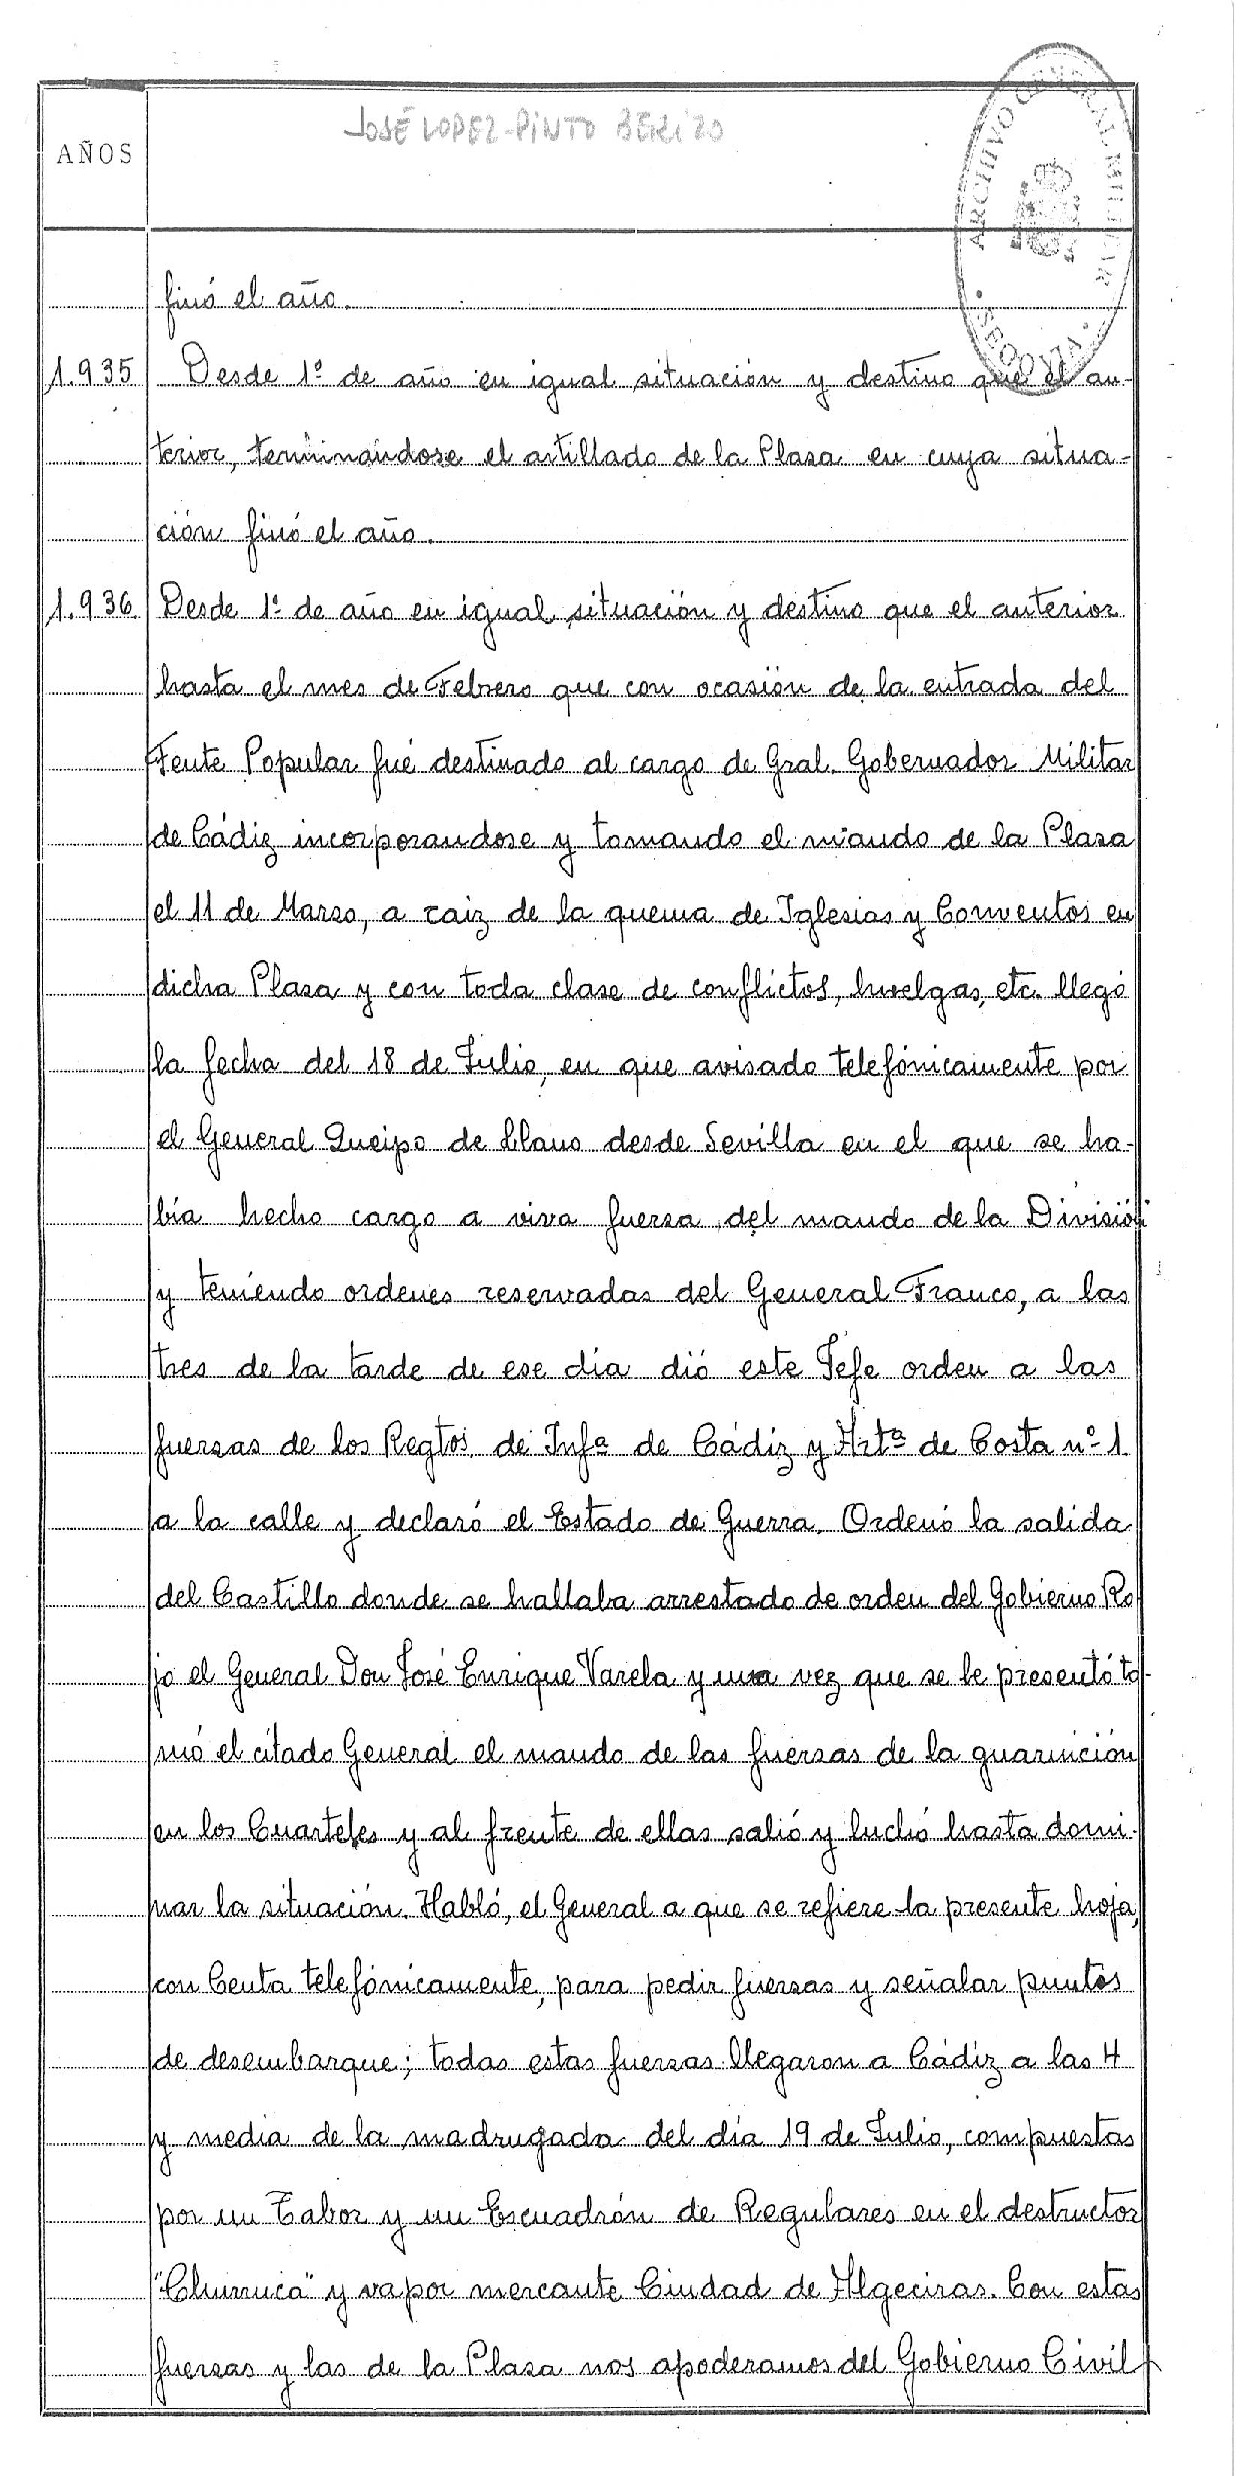 JOSÉ LOPEZ-PINTO BERIZO
ARCHIVO GENERAL MILITAR
· SEGOVIA ·
AÑOS
finó el año.
1.935 Desde 1º de año en igual situación y destino que el an-
terior, terminándose el artillado de la Plasa en cuya situa-
ción finó el año.
1.936 Desde 1º de año en igual situación y destino que el anterior
hasta el mes de Febrero que con ocasión de la entrada del
Fente Popular fué destinado al cargo de Gral. Gobernador Militar
de Cádiz incorporandose y tomando el mando de la Plasa
el 11 de Marso, a raiz de la quema de Iglesias y Conventos en
dicha Plasa y con toda clase de conflictos, huelgas, etc. llegó
la fecha del 18 de Julio, en que avisado telefónicamente por
el General Queipo de Llano desde Sevilla en el que se ha-
bía hecho cargo a viva fuersa del mando de la División
y teniendo ordenes reservadas del General Franco, a las
tres de la tarde de ese día dió este Jefe orden a las
fuersas de los Regtos de Infª de Cádiz y Artª de Costa nº 1
a la calle y declaró el Estado de Guerra. Ordenó la salida
del Castillo donde se hallaba arrestado de orden del Gobierno Ro
jo el General Don José Enrique Varela y una vez que se le presentó to-
mó el citado General el mando de las fuersas de la guarnición
en los Cuarteles y al frente de ellas salió y luchó hasta domi-
nar la situación. Habló, el General a que se refiere la presente hoja,
con Ceuta telefónicamente, para pedir fuersas y señalar puntos
de desembarque; todas estas fuersas llegaron a Cádiz a las 4
y media de la madrugada del día 19 de Julio, compuestas
por un Tabor y un Escuadrón de Regulares en el destructor
"Churruca" y vapor mercante Ciudad de Algeciras. Con estas
fuersas y las de la Plasa nos apoderamos del Gobierno Civil